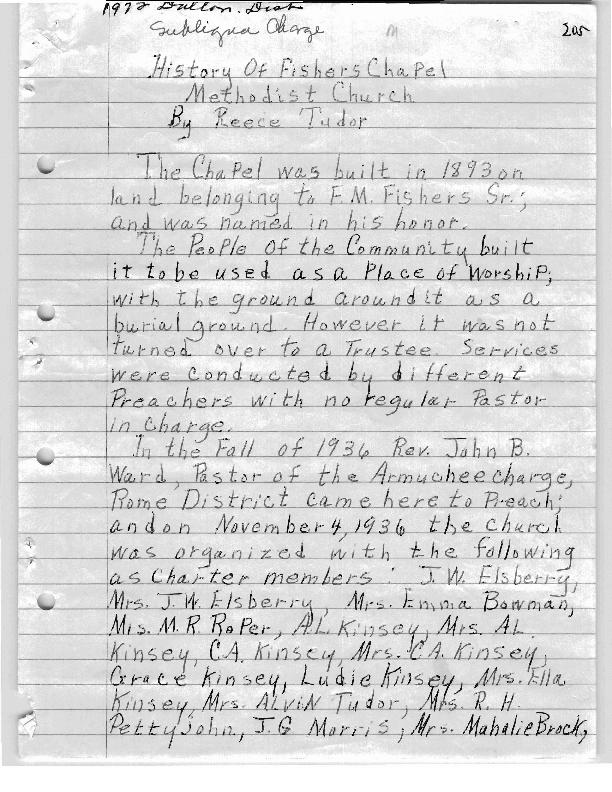 1972 Dalton Dist
Subligna Charge
205
History Of Fishers Chapel
Methodist Church
By Reece Tudor
The Chapel was built in 1893 on
land belonging to F.M. Fishers Sr.;
and was named in his honor.
The People of the Community built
it to be used as a Place of Worship;
with the ground around it as a
burial ground. However it was not
turned over to a Trustee. Services
were conducted by different
Preachers with no regular Pastor
in charge.
In the Fall of 1936 Rev. John B.
Ward, Pastor of the Armuchee charge,
Rome District came here to Preach;
and on November 4, 1936 the church
was organized with the following
as Charter members: J.W. Elsberry,
Mrs. J.W. Elsberry, Mrs. Emma Bowman,
Mrs. M.R. Roper, A.L. Kinsey, Mrs. AL.
Kinsey, C.A. Kinsey, Mrs. C.A. Kinsey,
Grace Kinsey, Ludie Kinsey, Mrs. Ella
Kinsey, Mrs. Alvin Tudor, Mrs. R. H.
Pettyjohn, J.G Morris, Mrs. Mahalie Brock,